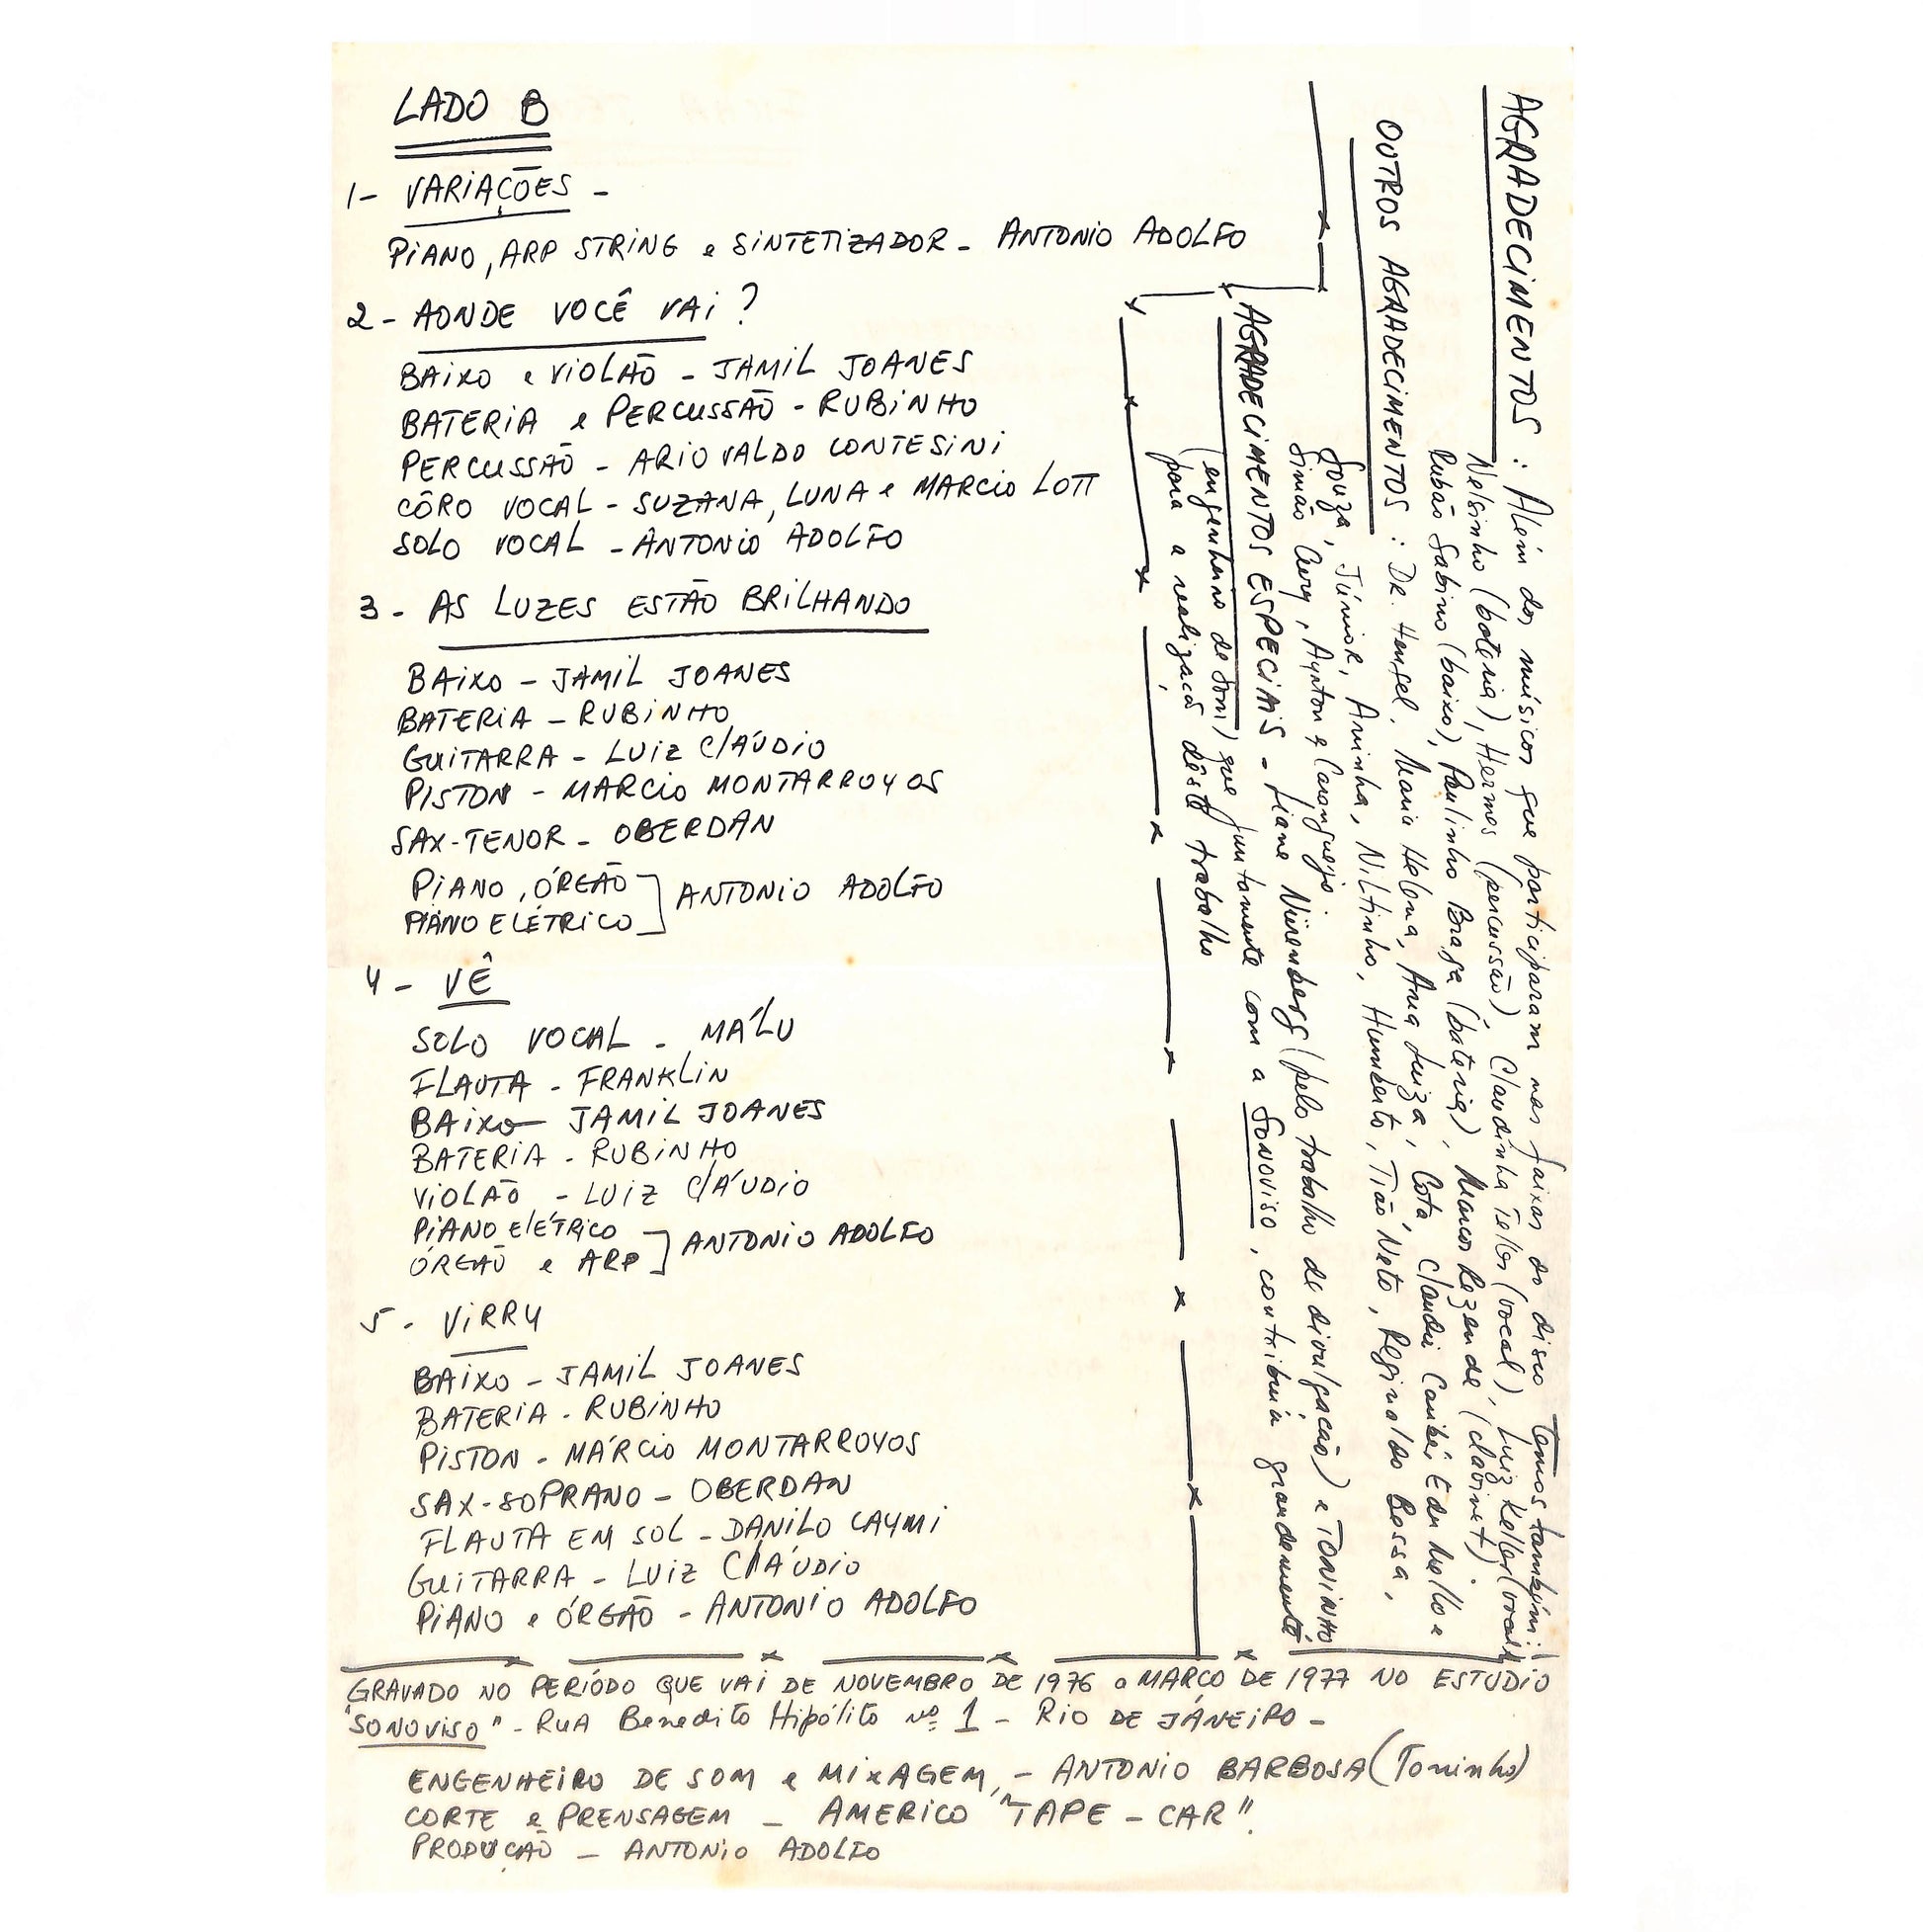 LADO B
1- VARIAÇÕES -
PIANO, ARP STRING e SINTETIZADOR - ANTONIO ADOLFO
2- AONDE VOCÊ VAI?
BAIXO e VIOLÃO - JAMIL JOANES
BATERIA e PERCUSSÃO - RUBINHO
PERCUSSÃO - ARIOVALDO CONTESINI
CÔRO VOCAL - SUZANA, LUNA e MARCIO LOTT
SOLO VOCAL - ANTONIO ADOLFO
3- AS LUZES ESTÃO BRILHANDO
BAIXO - JAMIL JOANES
BATERIA - RUBINHO
GUITARRA - LUIZ CLÁUDIO
PISTON - MARCIO MONTARROYOS
SAX-TENOR - OBERDAN
PIANO, ÓRGÃO
PIANO ELÉTRICO] ANTONIO ADOLFO
4- VÊ
SOLO VOCAL - MÁLU
FLAUTA - FRANKLIN
BAIXO - JAMIL JOANES
BATERIA - RUBINHO
VIOLÃO - LUIZ CLÁUDIO
PIANO ELÉTRICO
ÓRGÃO e ARP] ANTONIO ADOLFO
5- VIRRY
BAIXO - JAMIL JOANES
BATERIA - RUBINHO
PISTON - MÁRCIO MONTARROYOS
SAX-SOPRANO - OBERDAN
FLAUTA EM SOL - DANILO CAYMI
GUITARRA - LUIZ CLÁUDIO
PIANO e ÓRGÃO - ANTONIO ADOLFO
AGRADECIMENTOS: Além dos músicos que participaram nas faixas do disco Temos também:
Nelsinho (bateria), Hermes (percussão), Claudinha Telles (vocal), Luiz Keller (vocal)
Rubão Sabino (baixo), Paulinho Braga (bateria), Marcos Rezende (clavinet).
OUTROS AGRADECIMENTOS: Dr. Hensel, Maria Helena, Ana Luiza, Cota, Claudir, Caribé, Edu Mello e
Souza, Júnior, Aninha, Niltinho, Humberto, Tião Neto, Reginaldo Bessa,
Simão Ayrton e Caranguejo.
AGRADECIMENTOS ESPECIAIS - Liane Nirenberg (pelo trabalho de divulgação) e TONINHO
(engenheiro de som) que juntamente com a SONOVISO, contribuiu grandemente
para a realização dêste trabalho
GRAVADO NO PERÍODO QUE VAI DE NOVEMBRO DE 1976 a MARÇO DE 1977 NO ESTUDIO
"SONOVISO" - RUA Benedito Hipólito nº 1 - RIO DE JANEIRO -
ENGENHEIRO DE SOM e MIXAGEM - ANTONIO BARBOSA (Toninho)
CORTE e PRENSAGEM - AMERICO "TAPE-CAR".
PRODUÇÃO - ANTONIO ADOLFO